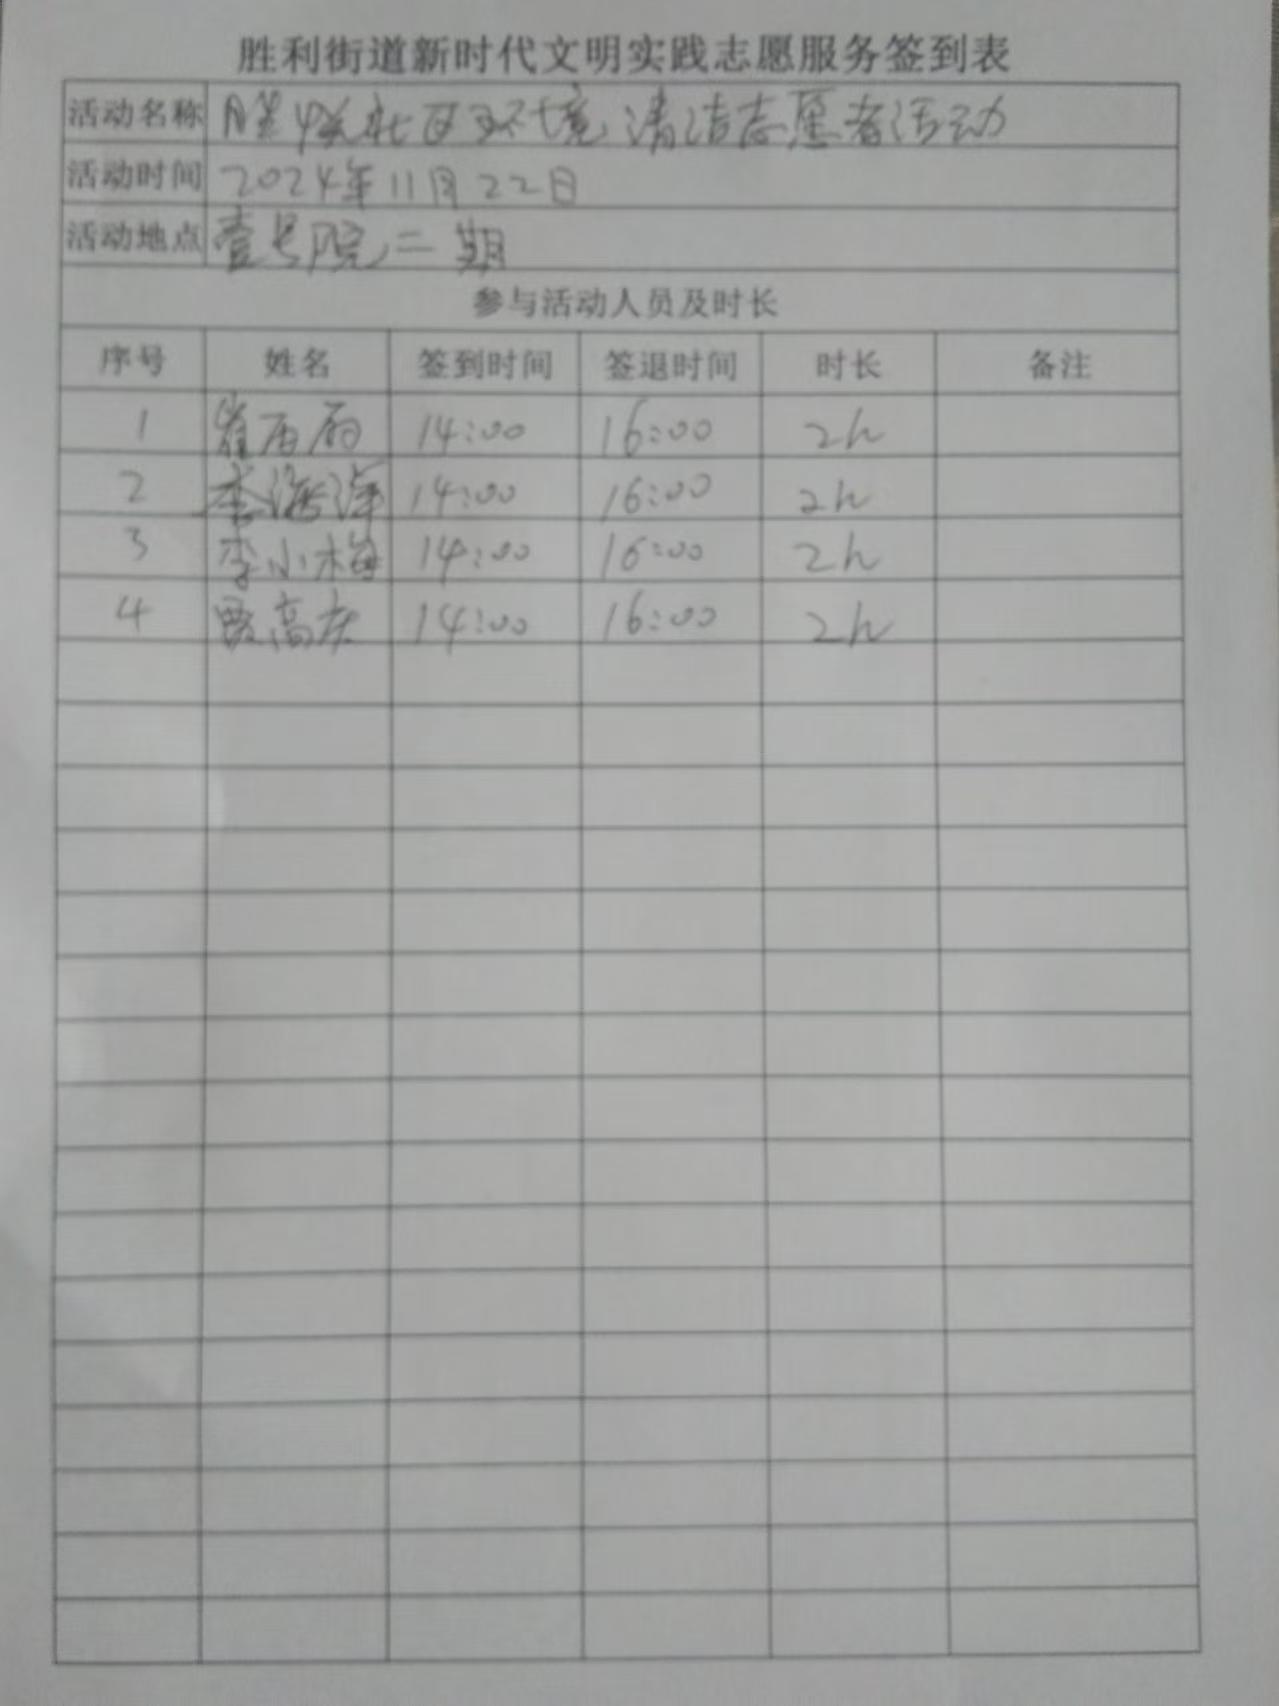 胜利街道新时代文明实践志愿服务签到表
活动名称 社区环境清洁志愿者活动
活动时间 2024年11月22日
活动地点 壹号院二期
参与活动人员及时长
序号 姓名 签到时间 签退时间 时长 备注
1 14:00 16:00 2h
2 李海洋 14:00 16:00 2h
3 李小梅 14:00 16:00 2h
4 14:00 16:00 2h